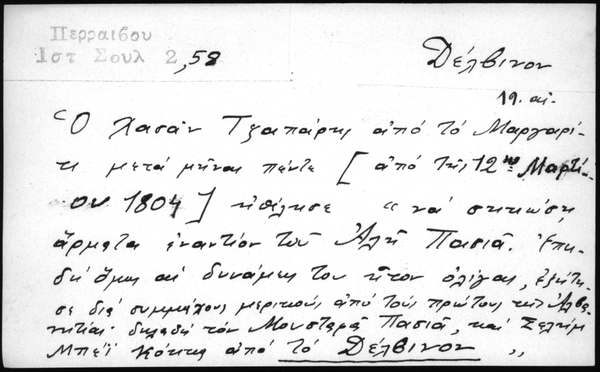 Περραιβου
Ιστ Σουλ 2,58
Δέλβινον
19. αι.
Ὁ Χασάν Τζαπάρης ἀπό τό Μαργαρί-
τι μετά μῆνας πέντε [ἀπό τῆς 12ης Μαρτί-
ου 1804] ἠθέλησε "νά σηκώση
ἄρματα ἐναντίον τοῦ Ἀλῆ Πασιᾶ. Ἐπει-
δή ὅμως αἱ δυνάμεις του ἦτον ὀλίγαι, ἐζήτη-
σε διά συμμάχους μερικούς ἀπό τούς πρώτους τῆς Ἀλβα-
νητίας δηλαδή τόν Μουσταφᾶ Πασιᾶ, καί Σελήμ
Μπέϊ Κόκας ἀπό τό Δέλβινον "